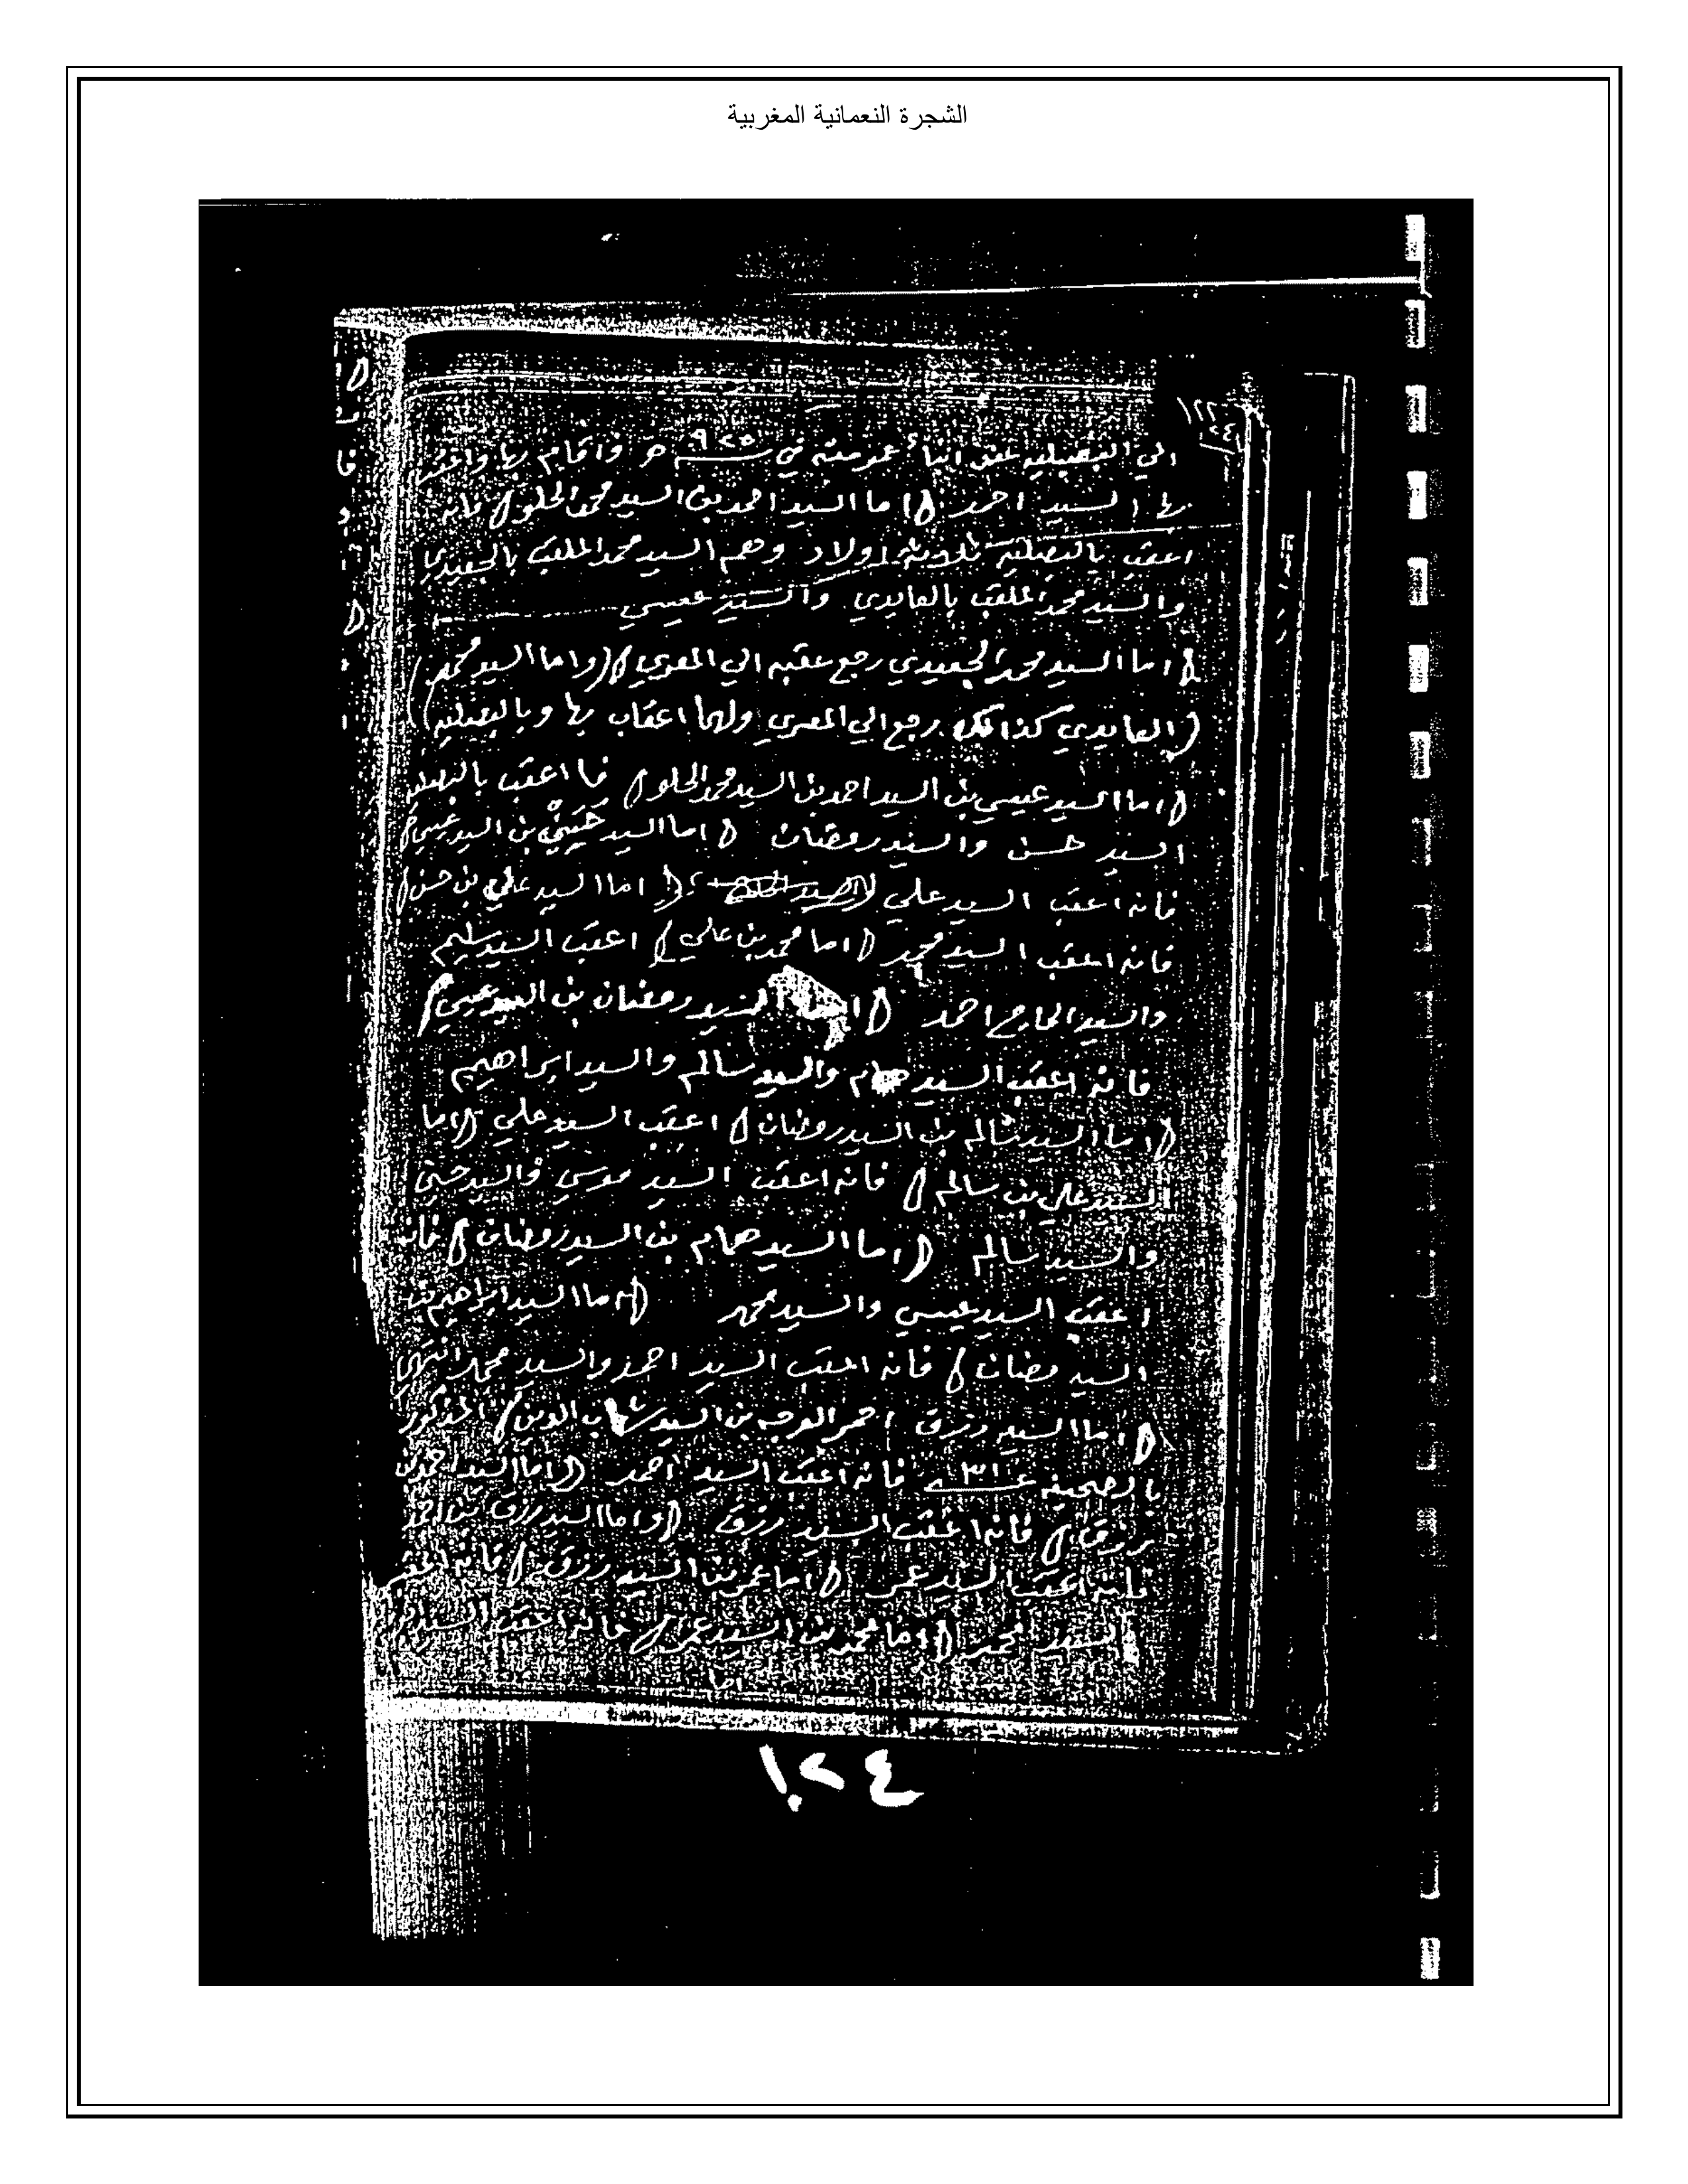 الشجرة النعمانية المغربية
الي البصيليه عند ابناء عمومته في سنة ٩٢٥ هـ واقام بها واعقب
بها السيد احمد (اما السيد احمد بن السيد محمد الحلو) فانه
اعقب بالبصيليه ثلاثة اولاد وهم السيد محمد الملقب بالجعيدي
والسيد محمد الملقب بالعايدي والسيد عيسي
(اما السيد محمد الجعيدي رجع عقبه الي المعري) (واما السيد محمد)
(العايدي كذالك رجع الي المعري ولهما اعقاب بها وبالبصيليه)
(اما السيد عيسي بن السيد احمد بن السيد محمد الحلو) فا اعقب بالبصيليه
السيد حسن والسيد رمضان (اما السيد بن السيد عيسي)
فانه اعقب السيد علي (اما السيد علي بن حسن)
فانه اعقب السيد محمد (اما محمد بن علي) اعقب السيد سليم
والسيد الحاج احمد (اما السيد رمضان بن السيد عيسي)
فانه اعقب السيد همام والسيد سالم والسيد ابراهيم
(اما السيد سالم بن السيد رمضان) اعقب السيد علي (اما
السيد علي بن سالم) فانه اعقب السيد موسي والسيد
والسيد سالم (اما السيد همام بن السيد رمضان) فانه
اعقب السيد عيسي والسيد محمد (اما السيد ابراهيم بن
السيد رمضان) فانه اعقب السيد احمد والسيد محمد انتهي
(اما السيد رزق احمر الوجه بن السيد شهاب الدين) المذكور
بالصحيفه ١٣١ فانه اعقب السيد احمد (اما السيد احمد بن
رزق) فانه اعقب السيد رزق (واما السيد رزق بن احمد
فانه اعقب السيد عمر (اما عمر بن السيد رزق) فانه اعقب
السيد محمد (اما محمد بن السيد عمر) فانه اعقب السيد
اما
١٢٤